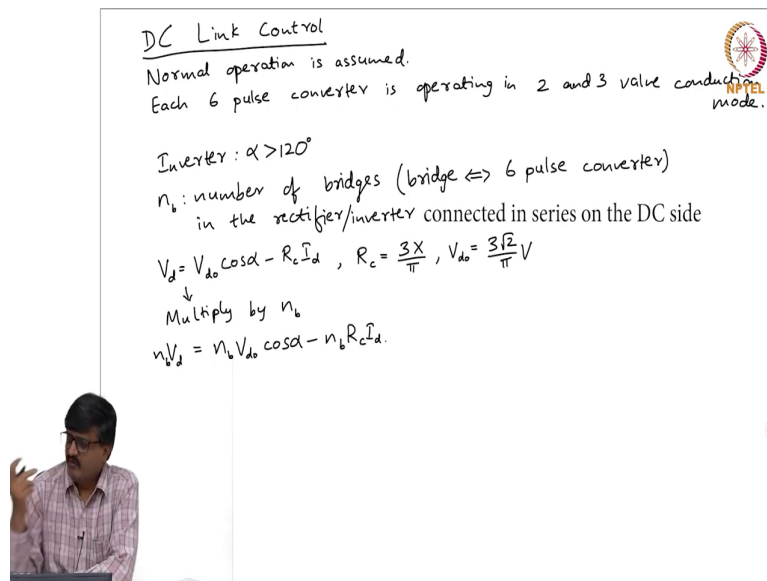 DC Link Control
Normal operation is assumed.
Each 6 pulse converter is operating in 2 and 3 valve conduction
mode.
NPTEL
Inverter : α > 120°
n_b : number of bridges (bridge ⟺ 6 pulse converter)
in the rectifier/inverter connected in series on the DC side
V_d = V_do cosα − R_c I_d , R_c = 3X/π , V_do = 3√2/π V
↓
Multiply by n_b
n_b V_d = n_b V_do cosα − n_b R_c I_d.